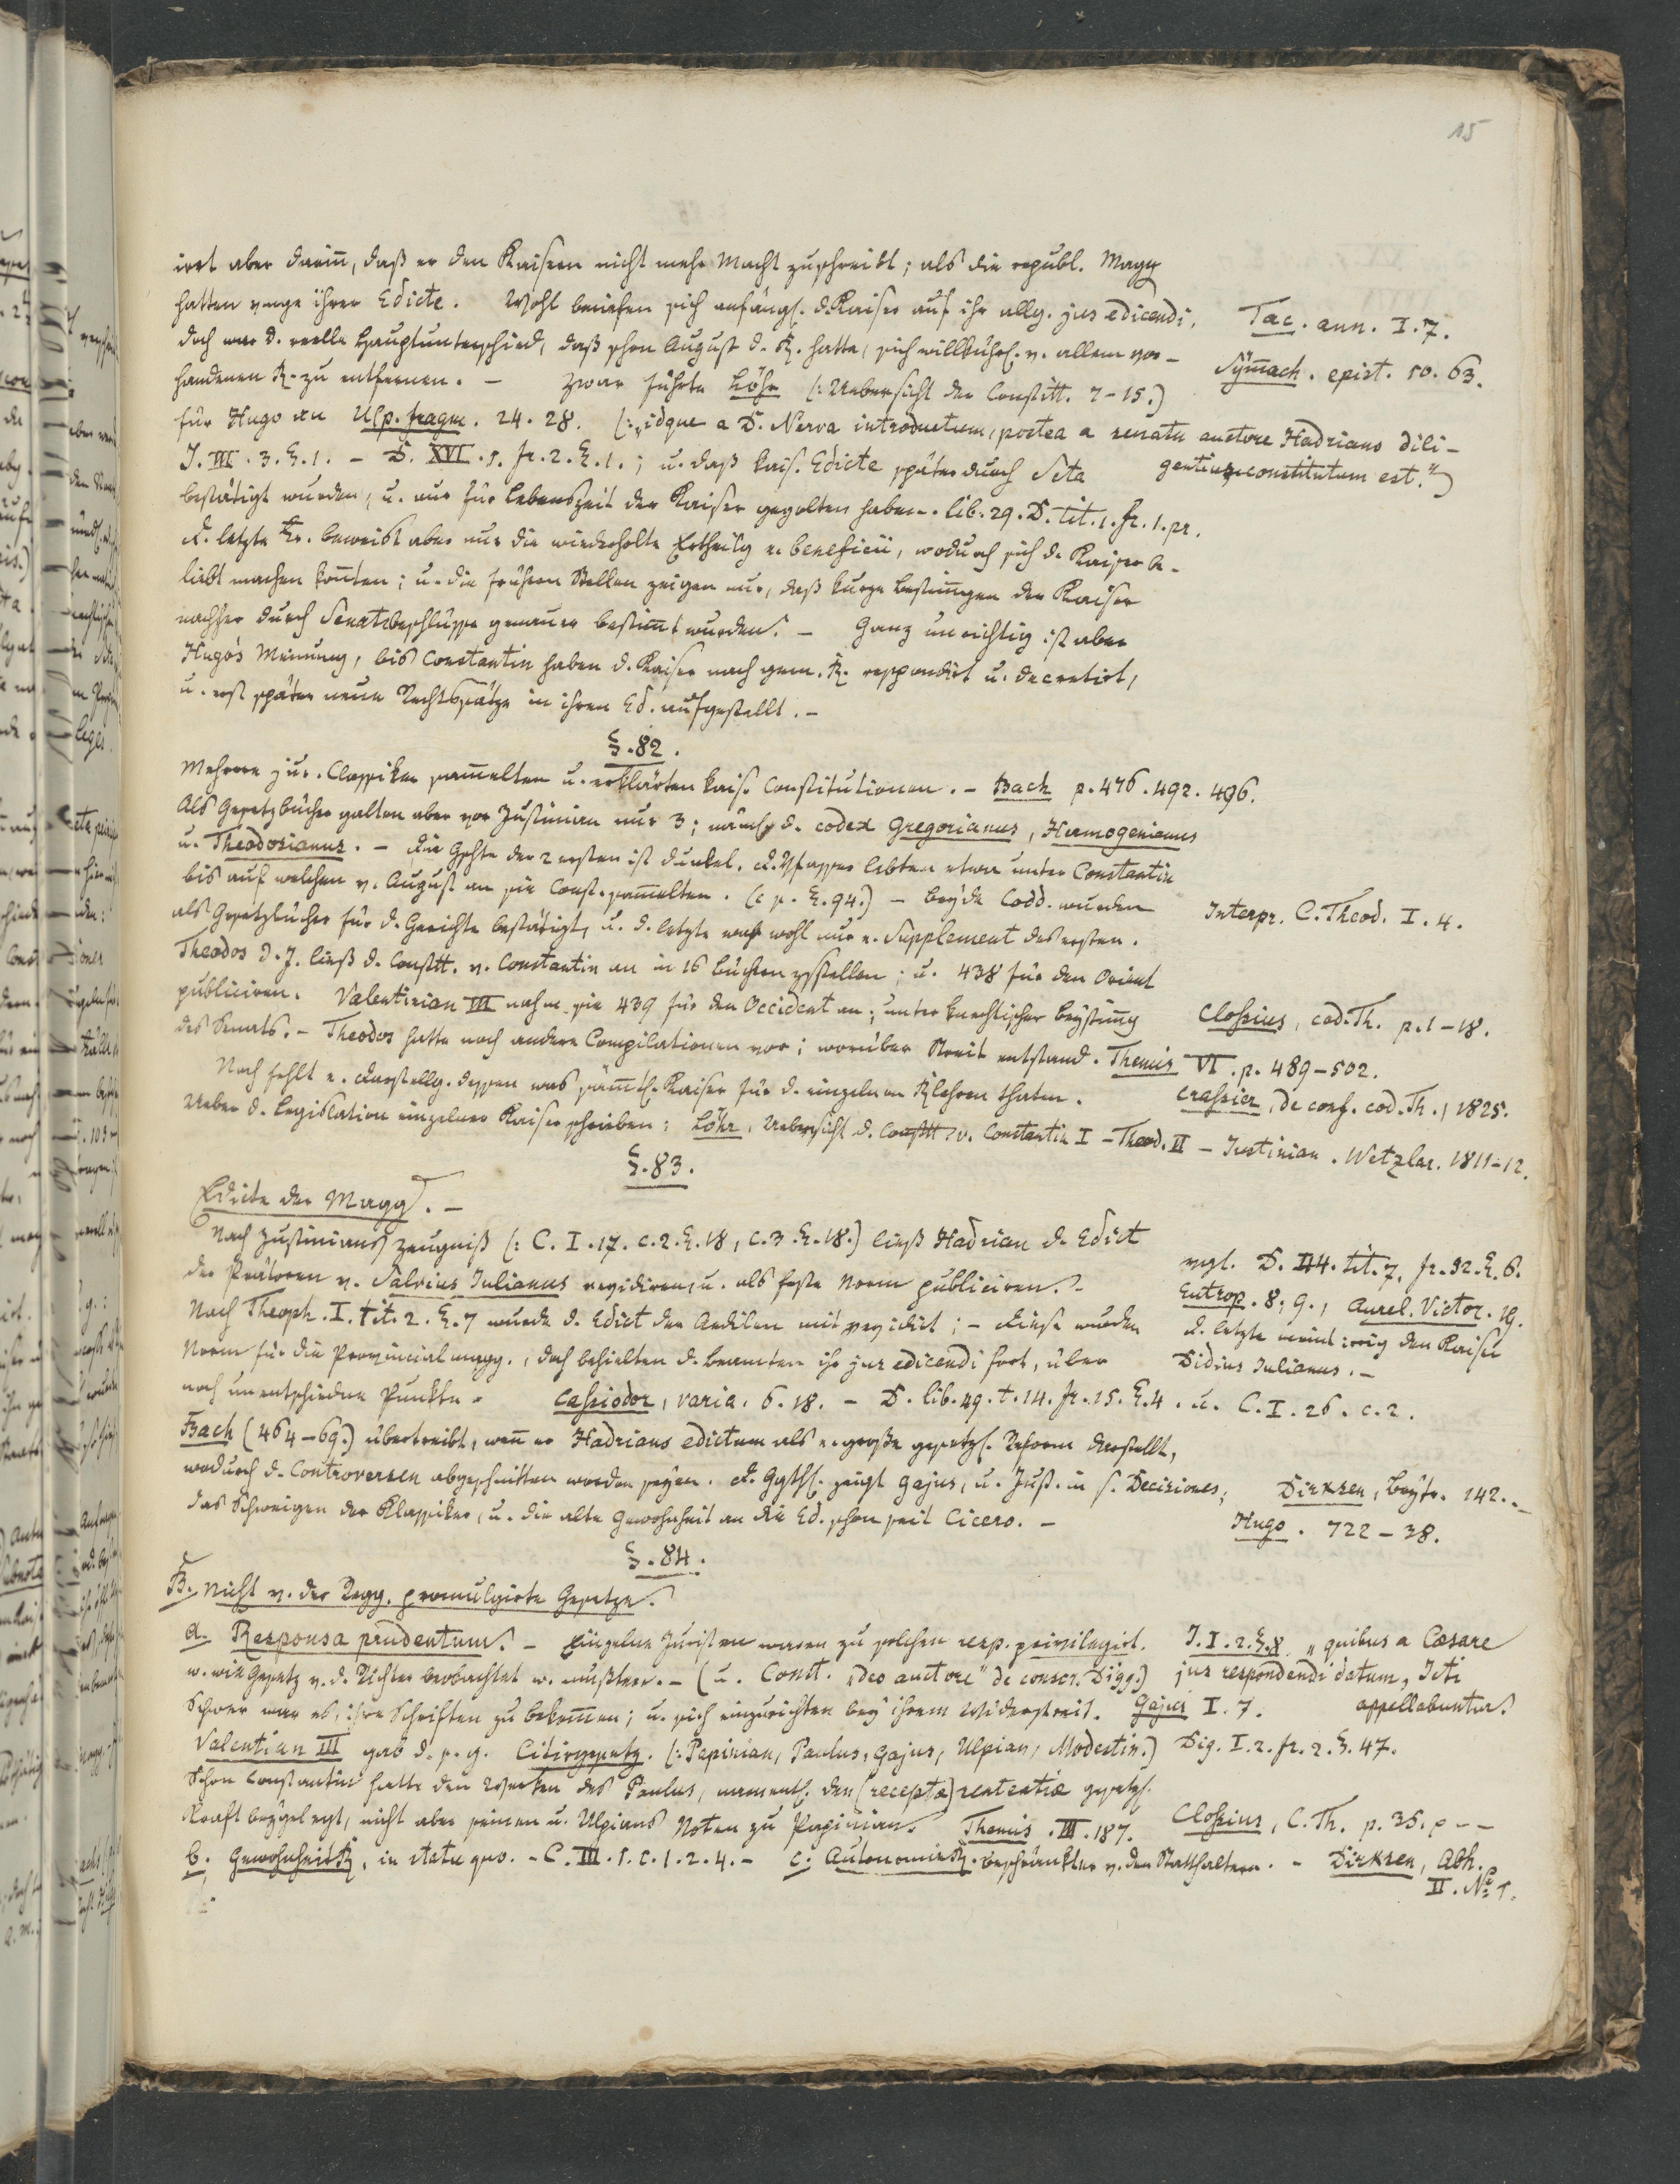 15
irrt aber darin̅, daß er den Kaisern nicht mehr Macht zuschreibt; als die republ. Magg
hatten wege ihrer Edicte. Wohl beriefen sich anfängl. d. Kaiser auf ihr allg. jus edicendi,
Tac. ann. I. 7.
doch war d. reelle Hauptunterschied, daß schon August d. R. hatte, sich willkührl. v. allem vor-
Sym̅ach. epist. 10. 63.
handenen R. zu entfernen. – Zwar führte Löhr (: Uebersicht der Constitt. 7-15.)
für Hugo an Ulp. fragm. 24. 28. (: „idque a D. Nerva introductum, postea a senatu auctore Hadriano dili-
gentius constitutum est.“)
J. III. 3. §. 1. – D. XVI. 1. fr. 2. §. 1.; u. daß kais. Edicte später durch Scta
bestätigt wurden, u. nur für Lebenszeit der Kaiser gegolten haben. lib. 29. D. tit. 1. fr. 1. pr.
D. letzte Fr. beweist aber nur die wiederholte Ertheilg e. beneficii, wodurch sich d. Kaiser be-
liebt machen kon̅ten; u. die frühern Stellen zeigen nur, daß kurze Bestim̅ungen der Kaiser
nachher durch Senatsbeschlüsse genauer bestim̅t wurden. – Ganz unrichtig ist aber
Hugo's Meinung, bis Constantin haben d. Kaiser nach gem. R. respondirt u. decretirt,
u. erst später neue Rechtssätze in ihren Ed. aufgestellt. –
§. 82.
Mehrere jur. Classiker sam̅elten u. erklärten kais. Constitutionen. – Bach p. 476. 492. 496.
Als Gesetzbücher galten aber vor Justinian nur 3; nämlich d. codex Gregorianus, Hermogenianus
u. Theodosianus. – Die Gschte der 2 ersten ist dunkel. D. Vfasser lebten etwa unter Constantin
bis auf welchen v. August an sie Const. sam̅elten. (c f. §. 94.) – Beyde Codd. wurden
Interpr. C. Theod. I. 4.
als Gesetzbücher für d. Gerichte bestätigt, u. d. letzte war wohl nur e. Supplement des ersten.
Theodos d. J. ließ d. Constt. v. Constantin an in 16 Büchern zsstellen; u. 438 für den Orient
publiciren. Valentinian III nahm sie 439 für den Occident an; unter knechtischer Beystim̅g
Cloßius, cod. Th. p. 1-18.
des Senats. – Theodos hatte noch andere Compilationen vor; worüber Streit entstand. Themis VI. p. 489-502.
Noch fehlt e. Darstellg. dessen was säm̅tl. Kaiser für d. einzelnen Rlehren thaten.
Craßier, de conf. cod. Th., 1825.
Ueber d. Legislation einzelner Kaiser schrieben: Löhr, Uebersicht d. Constt. v. Constantin I – Theod. II – Justinian. Wetzlar. 1811-12.
§. 83.
Edicte der Magg. –
Nach Justinians Zeugniß (: C. I. 17. c. 2. §. 18, c. 3. §. 18.) ließ Hadrian d. Edict
vgl. D. 4. tit. 7. fr. 32. §. 6.
der Prätoren v. Salvius Julianus revidiren, u. als feste Norm publiciren. –
Eutrop. 8, 9., Aurel. Victor. 19.
Nach Theoph. I. tit. 2. §. 7 wurde d. Edict der Aedilen mit revidirt; – diese wurden
d. letzte meint irrig den Kaiser
Norm für die Provincialmagg., doch behielten d. Beamten ihr jus edicendi fort, über
Didius Julianus. –
noch unentschiedene Punkte. Caßiodor, varia. 6. 18. – D. lib. 49. t. 14. fr. 15. §. 4. u. C. I. 26. c. 2.
Bach (464-69.) übertreibt, wen̅ er Hadrians edictum als e. große gesetzl. Reform darstellt,
wodurch d. Controversen abgeschnitten worden seyen. D. Ggthl. zeigt Gajus, u. Just. in s. Decisiones;
Dirksen, Beytr. 142. –
das Schweigen der Klassiker, u. die alte Gewohnheit an die Ed. schon seit Cicero. –
Hugo. 722-38.
§. 84.
B. Nicht v. der Regg. promulgirte Gesetze.
a. Responsa prudentum. – Einzelne Juristen waren zu solchen resp. privilegirt.
J. I. 2. §. 8 „quibus a Cæsare
w. wie Gesetz v. d. Richter beobachtet w. mußten. – (u. Const. „deo auctore“ de concr. Digg.)
jus respondendi datum, Jcti
Schwer war es, ihre Schriften zu bekom̅en; u. sich einzurichten bey ihrem Widerstreit. Gajus I. 7.
appellabuntur.
Valentian III gab d. s. g. Citirgesetz. (: Papinian, Paulus, Gajus, Ulpian, Modestin.)
Dig. I. 2. fr. 2. §. 47.
Schon Constantin hatte den Werken des Paulus, namentl. den (receptæ) sententiæ gesetzl.
Kraft beygelegt, nicht aber seinen u. Ulpians Noten zu Papinian. Themis. III. 187.
Cloßius, C. Th. p. 35. p – –
b. GewohnheitsR, in statu quo. – C. III. 1. c. 1. 2. 4. – c. AutonomieR. beschränkter v. den Statthaltern. – Dirksen, Abh.
II. No 1.